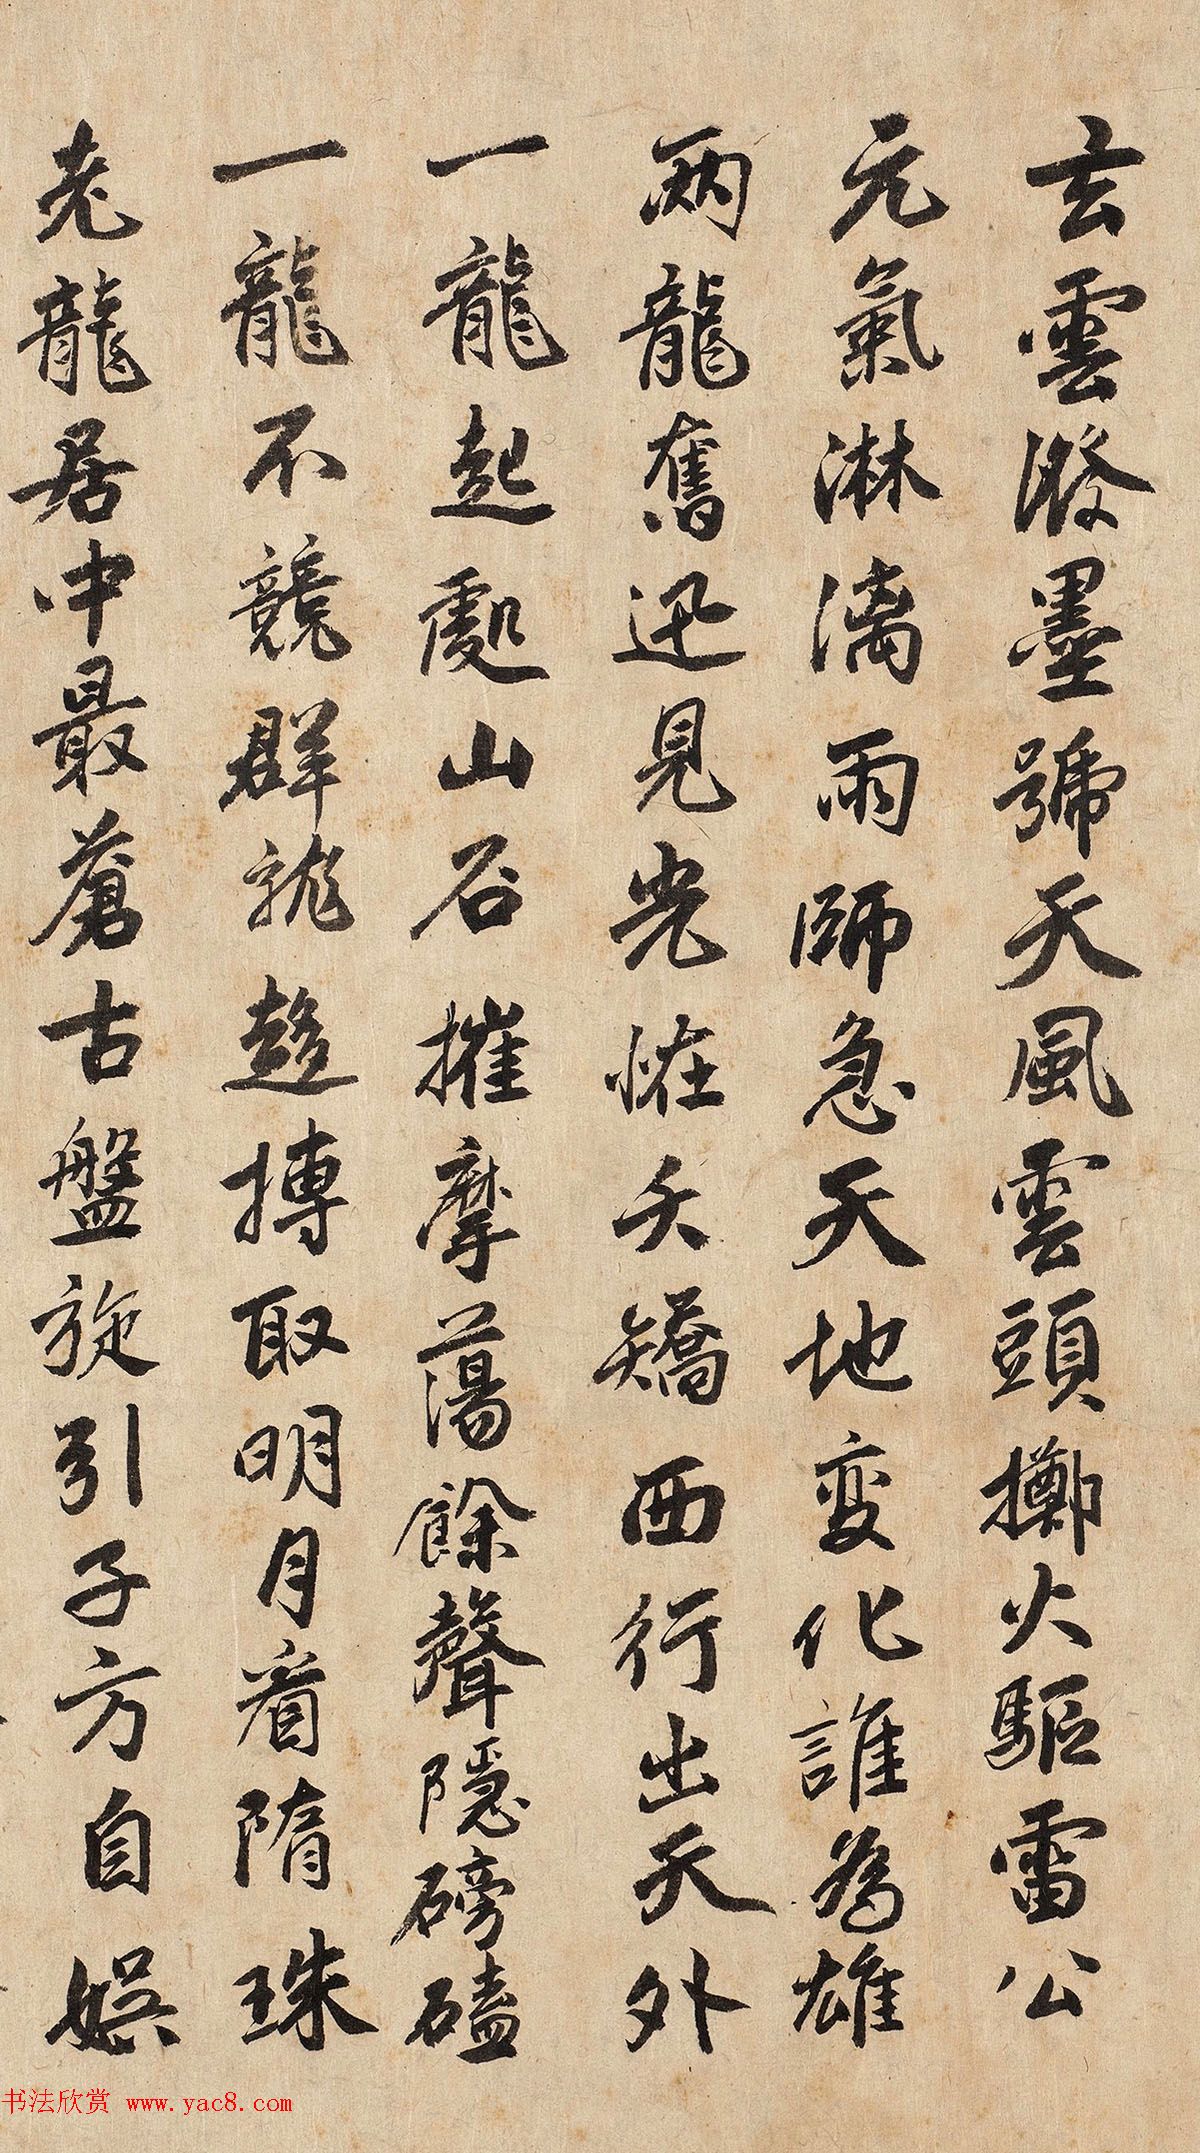 玄雲潑墨號天風雲頭擲火驅雷公
元氣淋漓雨師急天地変化誰為雄
兩龍奮迅見光怪夭矯西行出天外
一龍起處山石摧摩蕩餘聲隱磅磕
一龍不競群龍趨摶取明月看隋珠
老龍居中最蒼古盤旋引子方自娛
书法欣赏 www.yac8.com